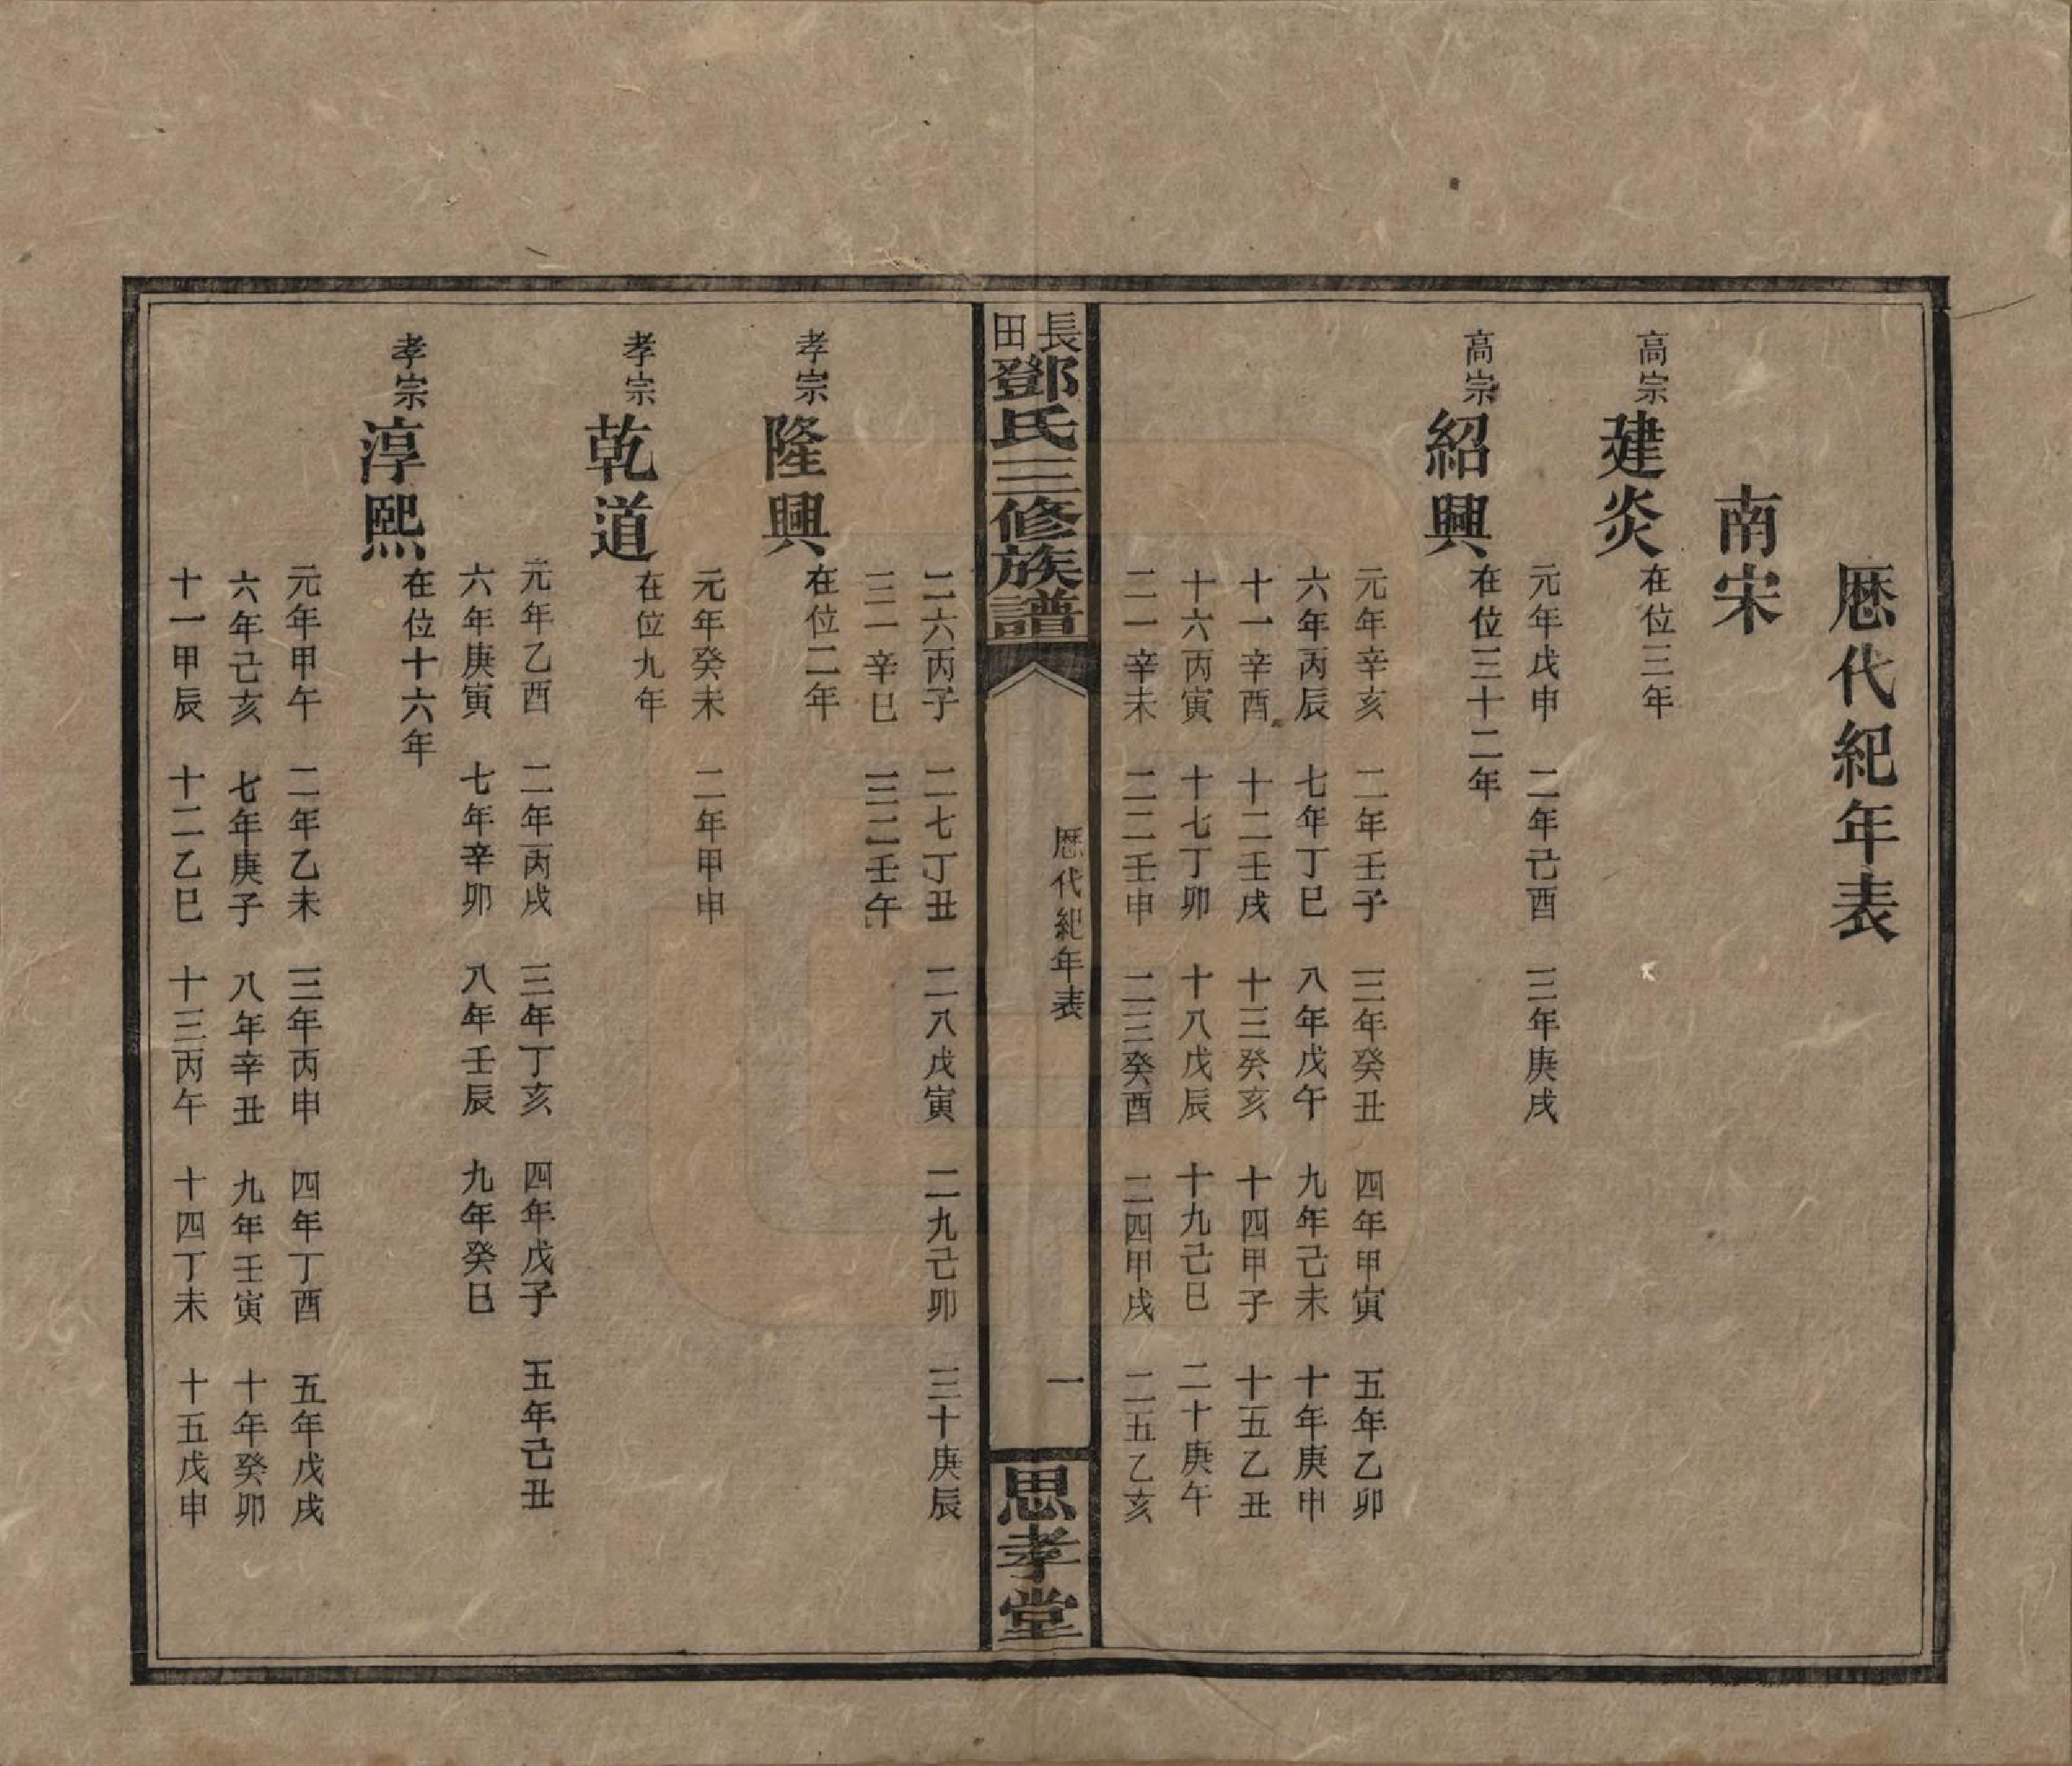 歷代紀年表
南宋
高宗 建炎 在位三年
元年戊申 二年己酉 三年庚戌
高宗 紹興 在位三十二年
元年辛亥 二年壬子 三年癸丑 四年甲寅 五年乙卯
六年丙辰 七年丁巳 八年戊午 九年己未 十年庚申
十一辛酉 十二壬戌 十三癸亥 十四甲子 十五乙丑
十六丙寅 十七丁卯 十八戊辰 十九己巳 二十庚午
二一辛未 二二壬申 二三癸酉 二四甲戌 二五乙亥
長田 鄧氏三修族譜 歷代紀年表 一 思孝堂
二六丙子 二七丁丑 二八戊寅 二九己卯 三十庚辰
三一辛巳 三二壬午
孝宗 隆興 在位二年
元年癸未 二年甲申
孝宗 乾道 在位九年
元年乙酉 二年丙戌 三年丁亥 四年戊子 五年己丑
六年庚寅 七年辛卯 八年壬辰 九年癸巳
孝宗 淳熙 在位十六年
元年甲午 二年乙未 三年丙申 四年丁酉 五年戊戌
六年己亥 七年庚子 八年辛丑 九年壬寅 十年癸卯
十一甲辰 十二乙巳 十三丙午 十四丁未 十五戊申